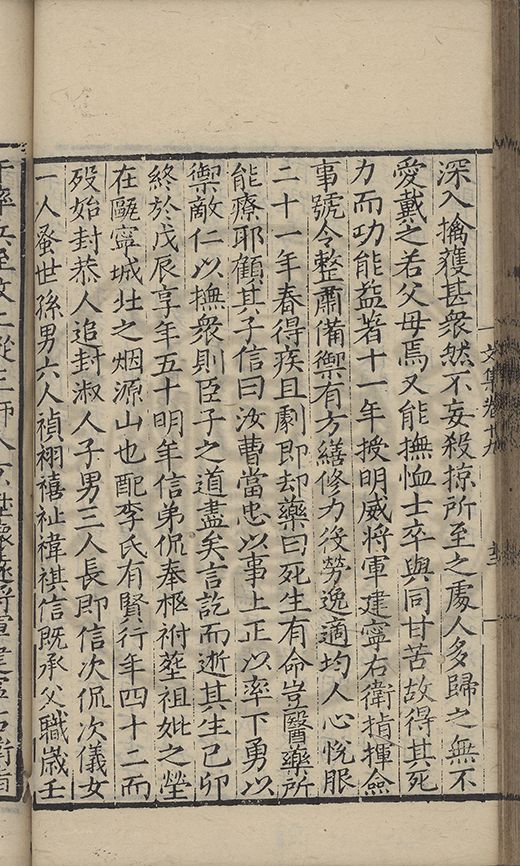 文集卷
深入擒獲甚衆然不妄殺掠所至之處人多歸之無不
愛戴之若父母焉又能撫恤士卒與同甘苦故得其死
力而功能益著十一年授明威將軍建寧右衛指揮僉
事號令整肅備禦有方繕修力役勞逸適均人心悅服
二十一年春得疾且劇即却藥曰死生有命豈醫藥所
能療耶顧其子信曰汝曹當忠以事上正以率下勇以
禦敵仁以撫衆則臣子之道盡矣言訖而逝其生己卯
終於戊辰享年五十明年信弟侃奉柩祔塟祖妣之塋
在甌寧城北之烟源山也配李氏有賢行年四十二而
歿始封恭人追封淑人子男三人長即信次侃次儀女
一人蚤世孫男六人禎祤禧祉禕祺信既承父職歲壬